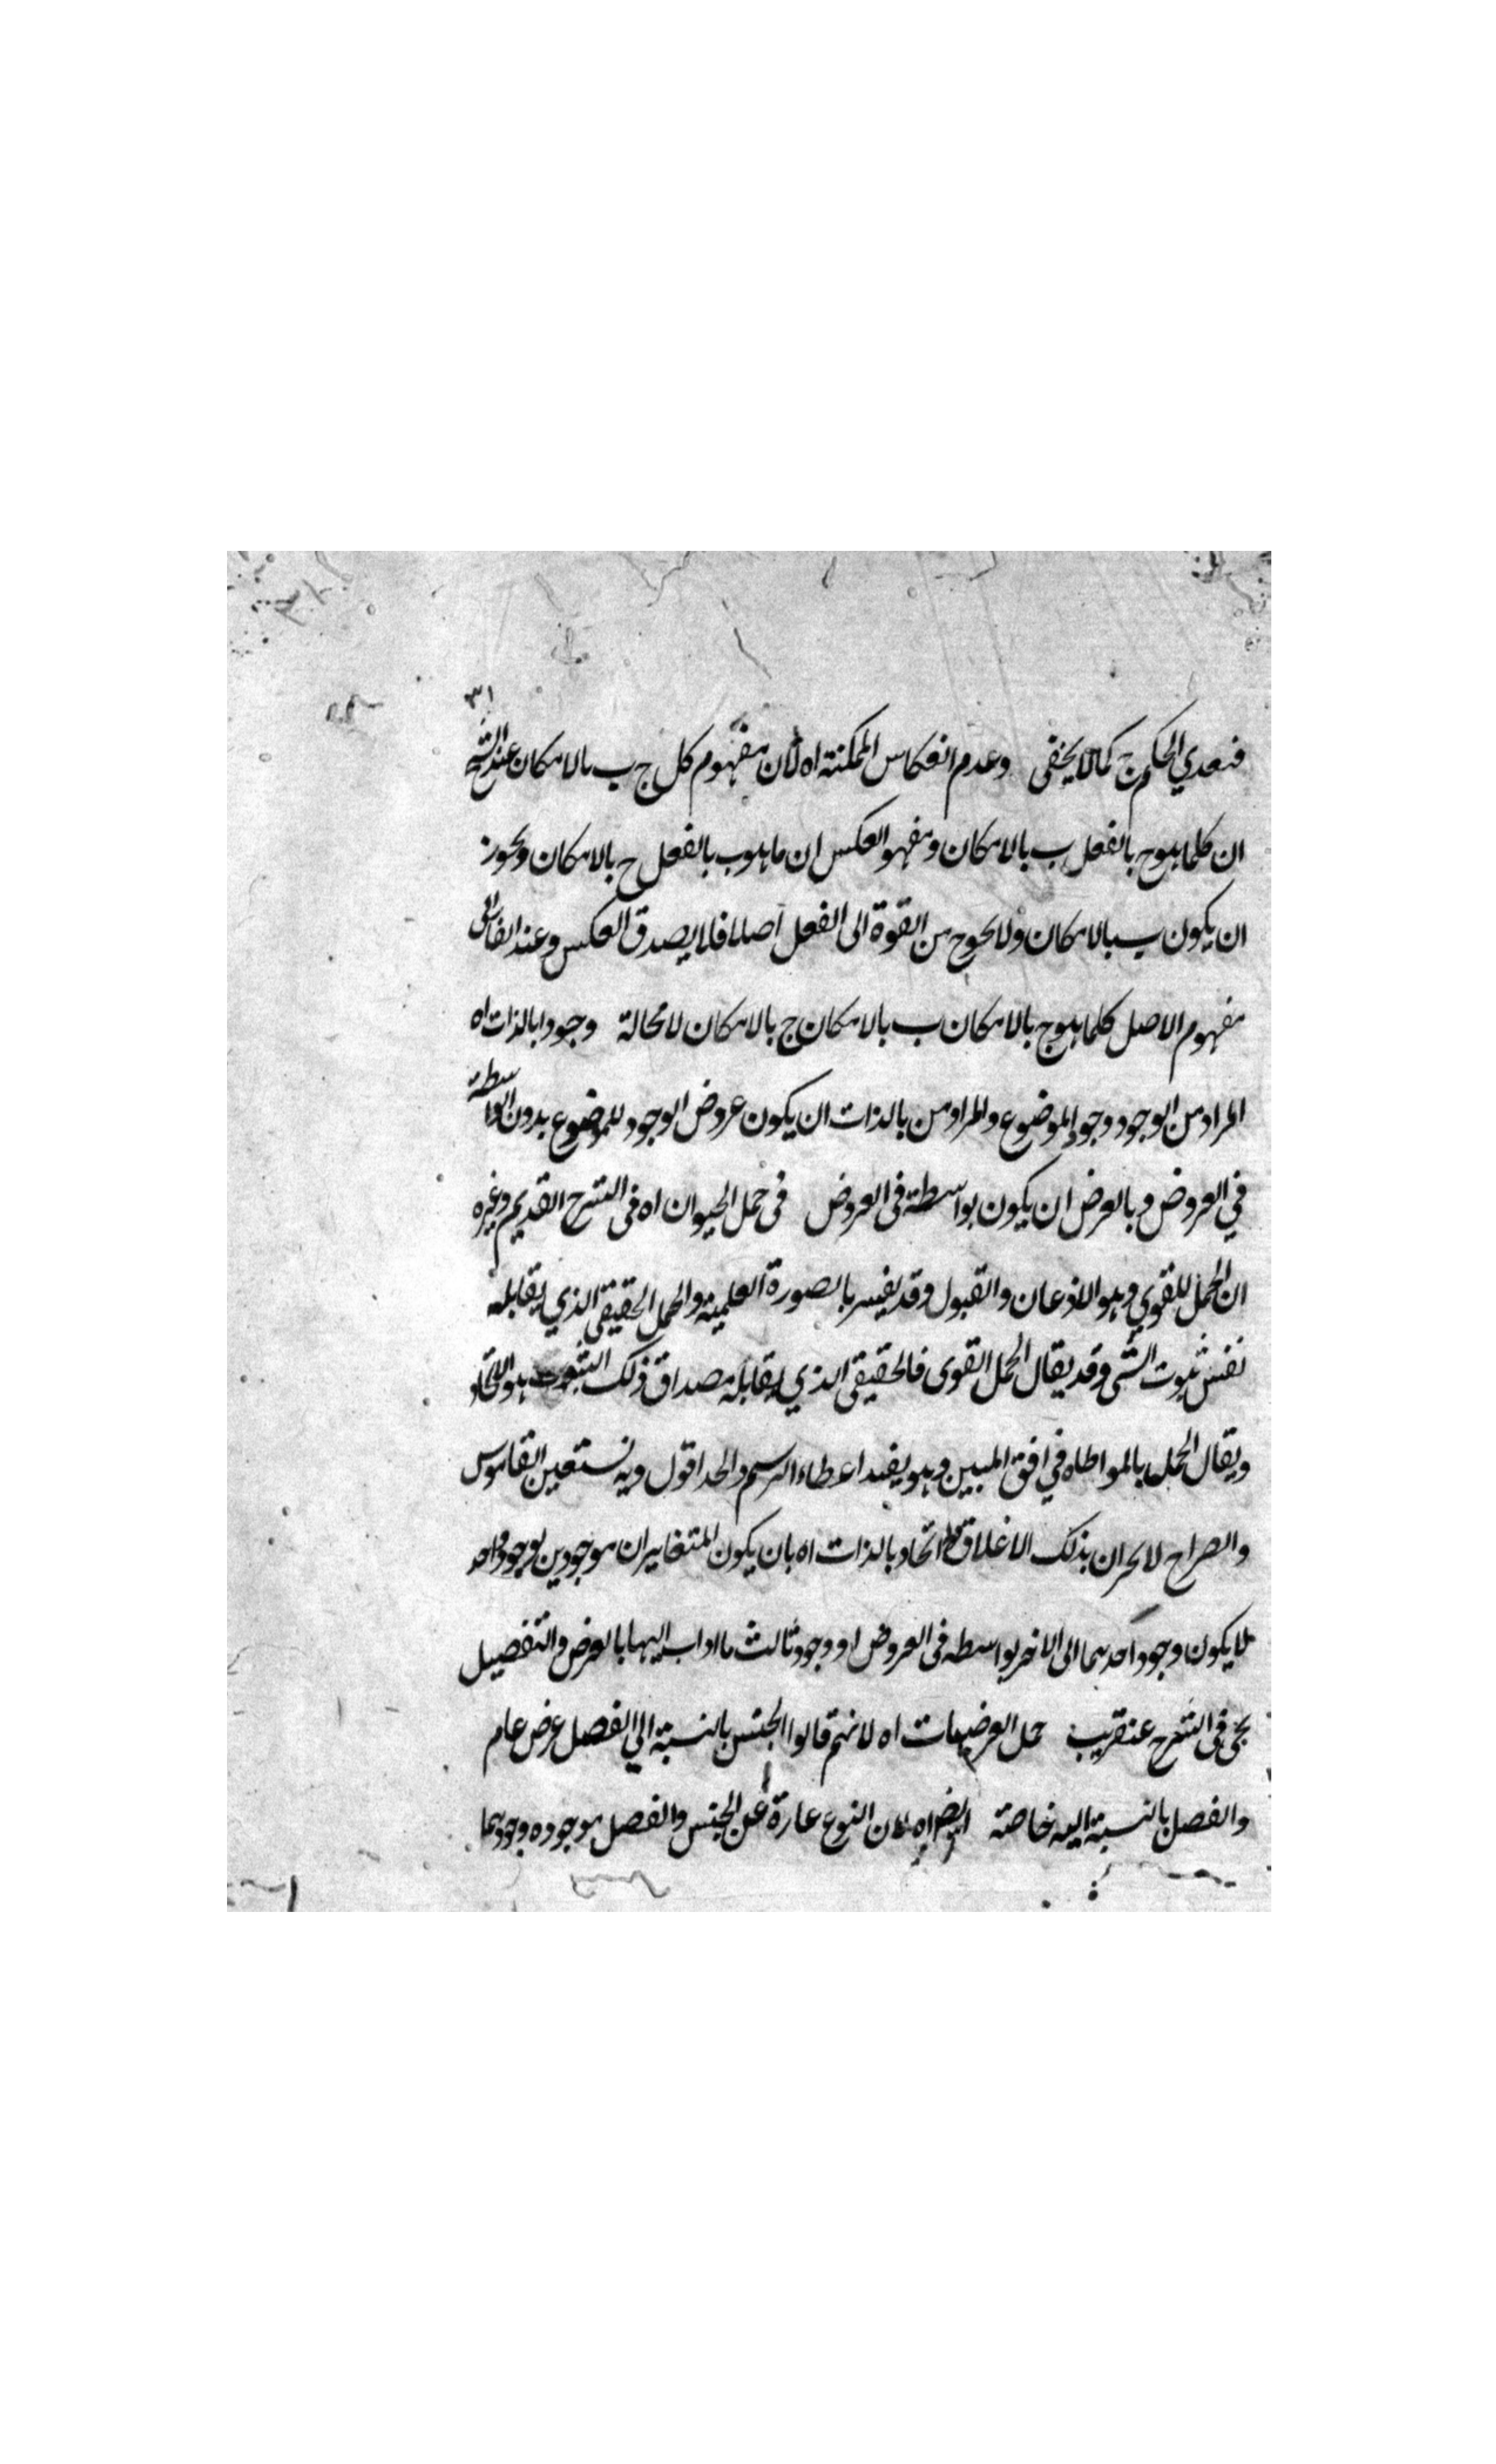 ٣١
فتعدي الحكم ج كما لا يخفى وعدم انعكاس الممكنة اه لان مفهوم كل ج ب بالامكان عند الشيخ
ان كلما هو ج بالفعل ب بالامكان ومفهو العكس ان ما هو ب بالفعل ج بالامكان ويجوز
ان يكون ب بالامكان ولا يخرج من القوة الى الفعل اصلا فلا يصدق العكس وعند الفارابى
مفهوم الاصل كلما هو ج بالامكان ب بالامكان ج بالامكان لا محالة وجودا بالذات اه
المراد من الوجود وجود الموضوع والمراد من بالذات ان يكون عروض الوجود للموضوع بدون الواسطة
في العروض وبالعرض ان يكون بواسطة فى العروض فى حمل الحيوان اه فى الشرح القديم وغيره
ان الحمل اللغوي وهو الاذعان والقبول وقد يفسر بالصورة العلمية والحمل الحقيقى الذي يقابله
نفس ثبوت الشى وقد يقال الحمل القوى فالحقيقى الذي يقابله مصداق ذلك الثبوت هو الاتحاد
ويقال الحمل بالمواطاه في افق المبين وهو يفيد اعطاء الرسم والحد اقول وبه نستعين القاموس
والصراح لا يحران بذلك الاغلاق اتحاد بالذات اه بان يكون المتغايران موجودين بوجود واحد
لا يكون وجود احدهما الى الاخر بواسطه فى العروض او وجود ثالث ما اداب اليها بالعرض والتفصيل
يجئ فى الشرح عنقريب حمل العرضيات اه لانهم قالوا الجنس بالنسبة الي الفصل عرض عام
والفصل بالنسبة اليه خاصة ايضا اه لان النوع عبارة عن الجنس والفصل موجوده وجودهما